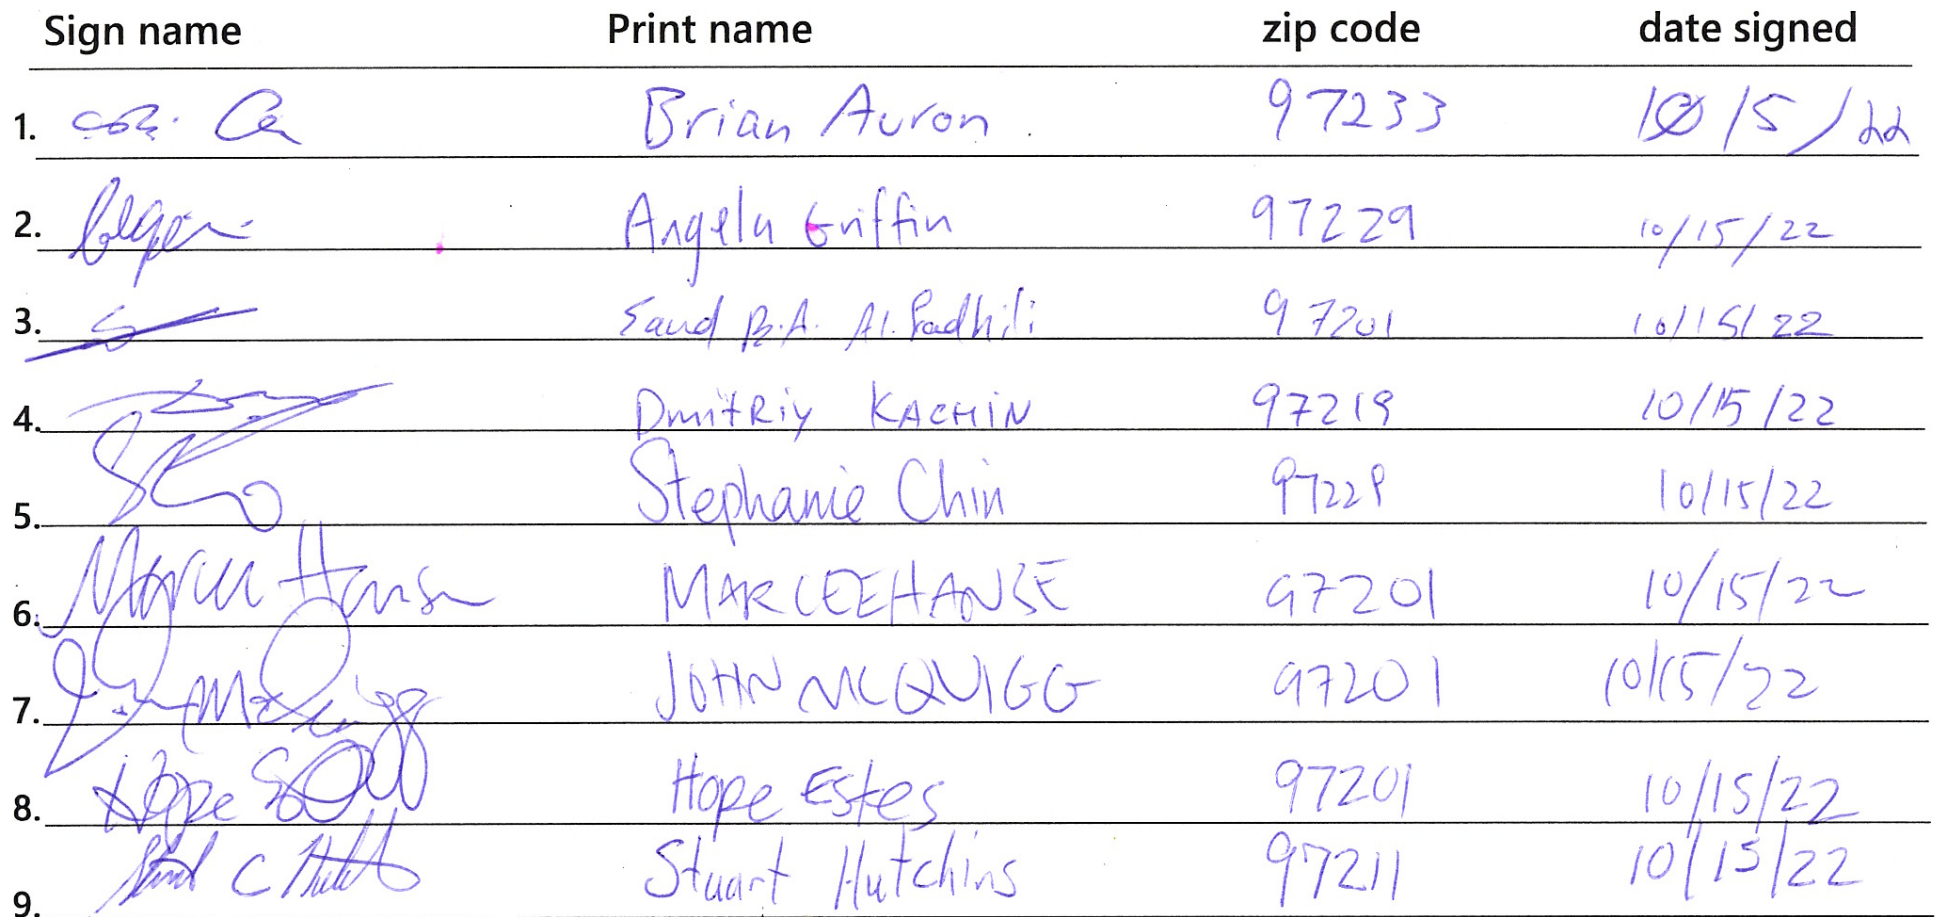 Sign name Print name zip code date signed
1. Brian Auron 97233 10/5/22
2. Angela Griffin 97229 10/15/22
3. Saud B.A. Al. Fadhili 97201 10/15/22
4. Dmitriy KACHIN 97219 10/15/22
5. Stephanie Chin 97229 10/15/22
6. Marcee Hanse MARCEE HANSE 97201 10/15/22
7. John McQuigg JOHN MCQUIGG 97201 10/15/22
8. Hope Hope Estes 97201 10/15/22
9. Stuart Hutchins 97211 10/15/22